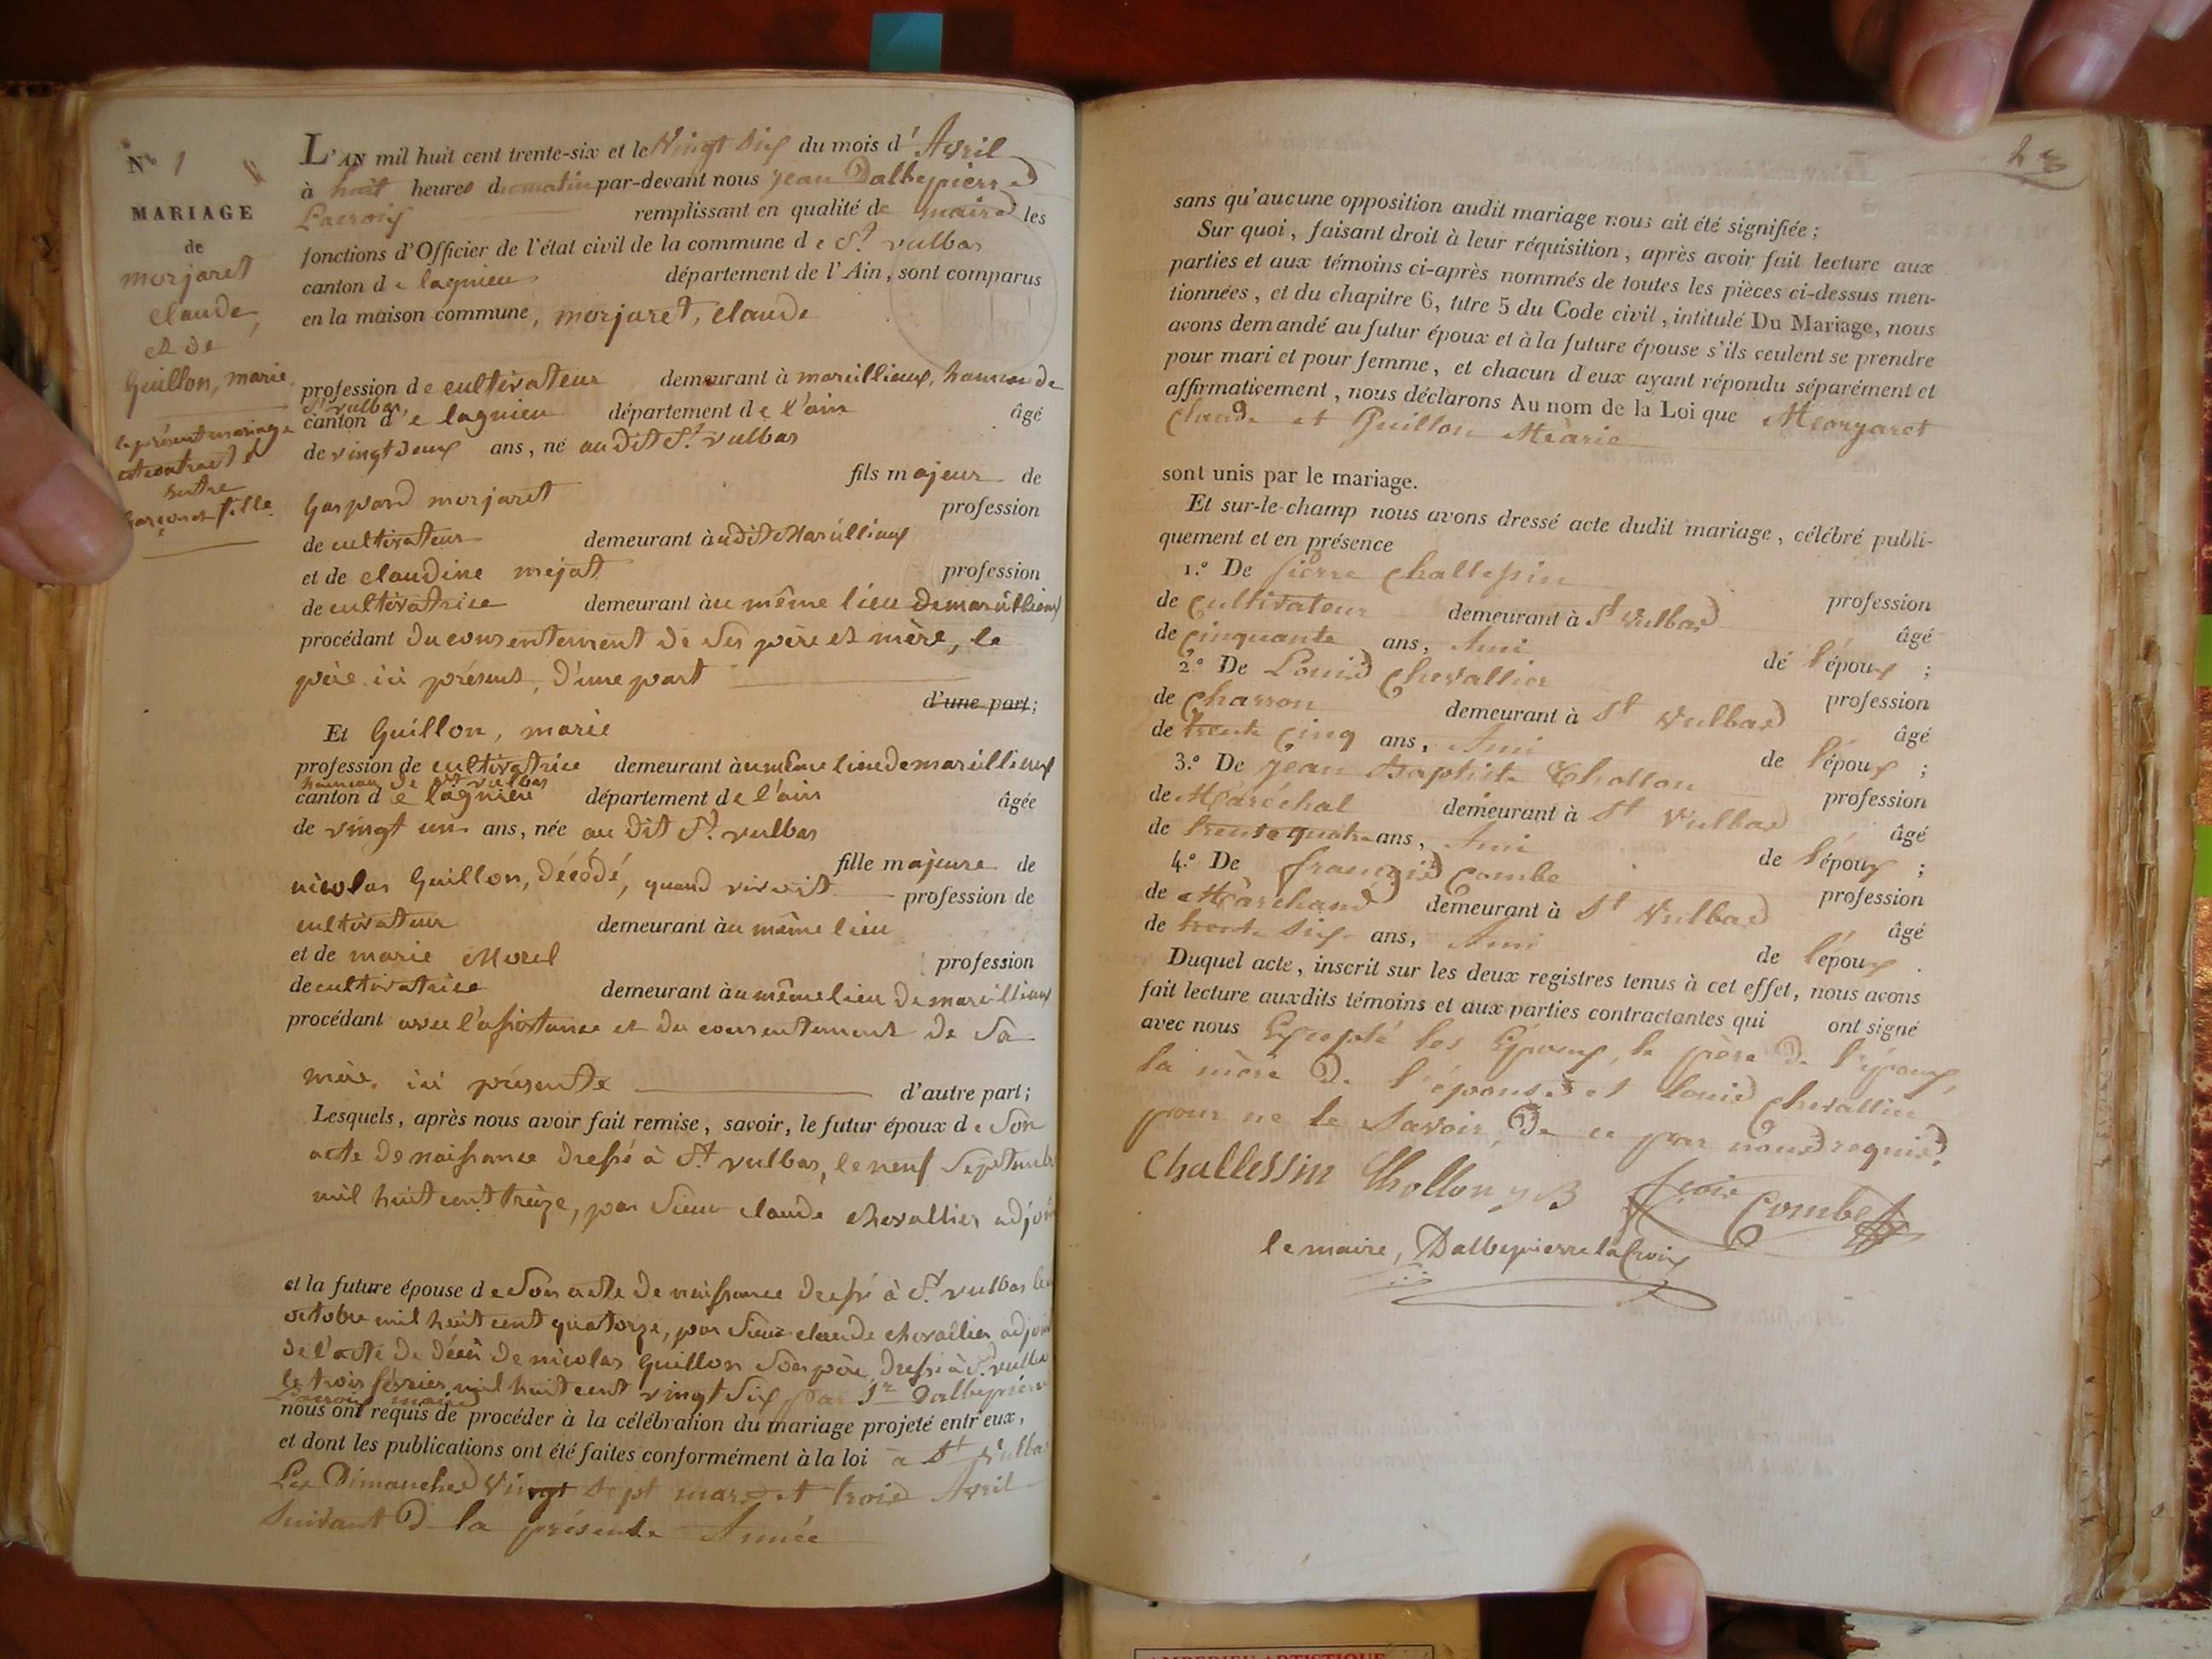 N° 1
MARIAGE
de
morjaret
claude,
et de
Guillon, marie.
le présent mariage
est contracté
entre
garçon et fille.
L'AN mil huit cent trente-six et le Vingt Six du mois d' Avril
à huit heures du matin par-devant nous Jean Dalbepierre
Lacroix remplissant en qualité de maire les
fonctions d'Officier de l'état civil de la commune de St. vulbas
canton de lagnieu département de l'Ain, sont comparus
en la maison commune, morjaret, claude
profession de cultivateur demeurant à marcillieux, hameau de
St. vulbas,
canton de lagnieu département de l'ain âgé
de vingt deux ans, né au dit St. vulbas
fils majeur de
Gaspard morjaret profession
de cultivateur demeurant à udit Marcillieux
et de claudine mejat profession
de cultivatrice demeurant à u même lieu de marcillieux
procédant du consentement de ses père et mère, le
père ici présent, d'une part
d'une part;
Et Guillon, marie
profession de cultivatrice demeurant à u même lieu de marcillieux
hameau de St. vulbas
canton de lagnieu département de l'ain âgée
de vingt un ans, née au dit St. vulbas
fille majeure de
nicolas Guillon, décédé, quand vivoit profession de
cultivateur demeurant à u même lieu
et de marie Morel profession
de cultivatrice demeurant à u même lieu de marcillieux
procédant avec l'assistance et du consentement de Sa
mère ici présente d'autre part;
Lesquels, après nous avoir fait remise, savoir, le futur époux de Son
acte de naissance dressé à St. vulbas, le neuf Septembre
mil huit cent treize, par Sieur claude chevallier adjoint
et la future épouse de Son acte de naissance dressé à St. vulbas
octobre mil huit cent quatorze, par Sieur claude chevallier adjoint
de l'acte de décès de nicolas Guillon Son père dressé à St. vulbas
le trois février mil huit cent vingt Six par Sr Dalbepierre
Lacroix maire
nous ont requis de procéder à la célébration du mariage projeté entr'eux,
et dont les publications ont été faites conformément à la loi à St Vulbas
Les Dimanches Vingt Sept mars et trois Avril
Suivant De la présente Année
sans qu'aucune opposition audit mariage nous ait été signifiée;
Sur quoi, faisant droit à leur réquisition, après avoir fait lecture aux
parties et aux témoins ci-après nommés de toutes les pièces ci-dessus men-
tionnées, et du chapitre 6, titre 5 du Code civil, intitulé Du Mariage, nous
avons demandé au futur époux et à la future épouse s'ils veulent se prendre
pour mari et pour femme, et chacun d'eux ayant répondu séparément et
affirmativement, nous déclarons Au nom de la Loi que Morgaret
Claude et Guillon Marie
sont unis par le mariage.
Et sur-le-champ nous avons dressé acte dudit mariage, célébré publi-
quement et en présence
1.° De pierre Challessin profession
de Cultivateur demeurant à St Vulbas âgé
de Cinquante ans, Ami de l'époux ;
2.° De Louis Chevallier profession
de Charron demeurant à St Vulbas âgé
de trente Cinq ans, Ami de l'époux ;
3.° De Jean Baptiste Thollon profession
de Maréchal demeurant à St Vulbas âgé
de trente quatre ans, Ami de l'époux ;
4.° De françois Combe profession
de Marchand demeurant à St Vulbas âgé
de trente Six ans, Ami de l'époux .
Duquel acte, inscrit sur les deux registres tenus à cet effet, nous avons
fait lecture auxdits témoins et aux parties contractantes qui ont signé
avec nous Excepté les Epoux, le père De l'époux,
la mère De l'épouse et Louis Chevallier
pour ne le Savoir, De ce par nous requis.
Challessin Thollon J B frois Combe
le maire, Dalbepierre la Croix
AMBERIEU ARTISTIQUE